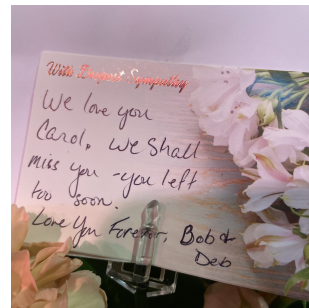 With Deepest Sympathy
We love you
Carol. We Shall
miss you - you left
too soon.
Love You Forever, Bob &
Deb